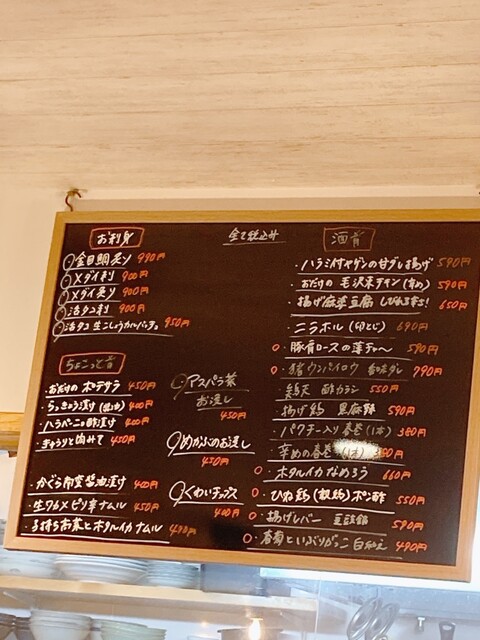 お刺身
金目鯛炙り 990円
メダイ刺 900円
メダイ炙り 900円
活タコ刺 900円
活タコ 生こしょうカルパッチョ 950円
ちょこっと肴
おだけの ポテサラ 450円
らっきょう漬け 400円
ハラペーニョ酢漬け 400円
きゅうりと肉みそ 450円
かぐら南蛮醤油漬け 400円
生ワカメ ピリ辛ナムル 450円
子持ちお菜とホタルイカ ナムル 490円
全て税込み
アスパラ菜
お浸し
450円
めかぶのお浸し
450円
くわいチップス
400円
酒肴
ハラミ付ヤゲンの甘ダレ揚げ 590円
おだけの 毛沢東チキン (辛め) 590円
揚げ麻婆豆腐 しびれます! 650円
ニラポール (卵とじ) 690円
豚肩ロースの薄チャー 590円
猪ウンパイロウ 香味ダレ 790円
鶏天 酢カラシ 550円
揚げ鶏 黒麻野 590円
パクチー入り 春巻 (1本) 380円
辛めの春巻 (1本) 380円
ホタルイカなめろう 660円
ひね鶏 (親鶏) ポン酢 550円
揚げレバー 豆豉餡 590円
春菊といぶりがっこ 白和え 490円